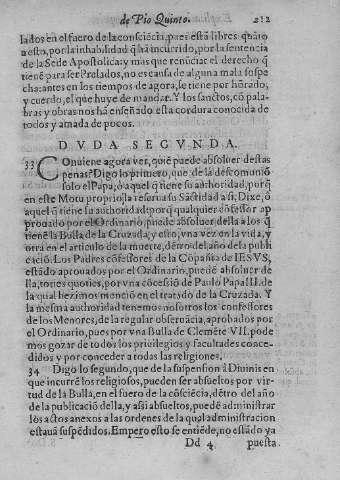 de Pio Quinto. 212
lados en el fuero de la consciẽcia, pues està libres quãto
a esto, por la inhabilidad q̃ hã incurrido, por la sentencia
de la Sede Apostolica: y mas que renũciar el derecho q̃
tienẽ para ser Prelados, no es causa de alguna mala sospe
cha: antes en los tiempos de agora, se tiene por hõrado,
y cuerdo, el que huye de mandar. Y los sanctos, cõ pala-
bras y obras nos hã enseñado esta cordura conocida de
todos y amada de pocos.
DVDA SEGVNDA.
33 COnuiene agora ver, quiẽ puede absoluer destas
penas? Digo lo primero, que de la descomuniõ
solo el Papa, ò aquel q̃ tiene su authoridad, porq̃
en este Motu proprio, la reserua su Sãctidad a si, Dixe, ò
aquel q̃ tiene su authoridad: porq̃ qualquier cõfessor ap
prouado por el Ordinario, puede absoluer della a los q̃
tienẽ la Bulla de la Cruzada, y esto, vna vez en la vida, y
otra en el articulo de la muerte, dẽtro del año de la publi
caciõ. Los Padres cõfessores de la Cõpañia de IESVS,
estãdo aprouados por el Ordinario, puedẽ absoluer de
lla, toties quoties, por vna cõcessiõ de Paulo Papa III. de
la qual hezimos menciõ en el tratado de la Cruzada. Y
la mesma authoridad tenemos nosotros los cõfessores
de los Menores, de la regular obseruãcia, aprobados por
el Ordinario, pues por vna Bulla de Clemẽte VII. pode
mos gozar de todos los priuilegios y facultades conce-
didos y por conceder a todas las religiones.
34 Digo lo segundo, que de la suspension à Diuinis en
que incurrẽ los religiosos, pueden ser absueltos por vir-
tud de la Bulla, en el fuero de la cõsciẽcia, dẽtro del año
de la publicaciõ della, y assi absueltos, puedẽ administrar
los actos anexos a las ordenes de la qual administracion
estauã suspẽdidos. Empero esto se entiẽde, no estãdo ya
Dd 4 puesta